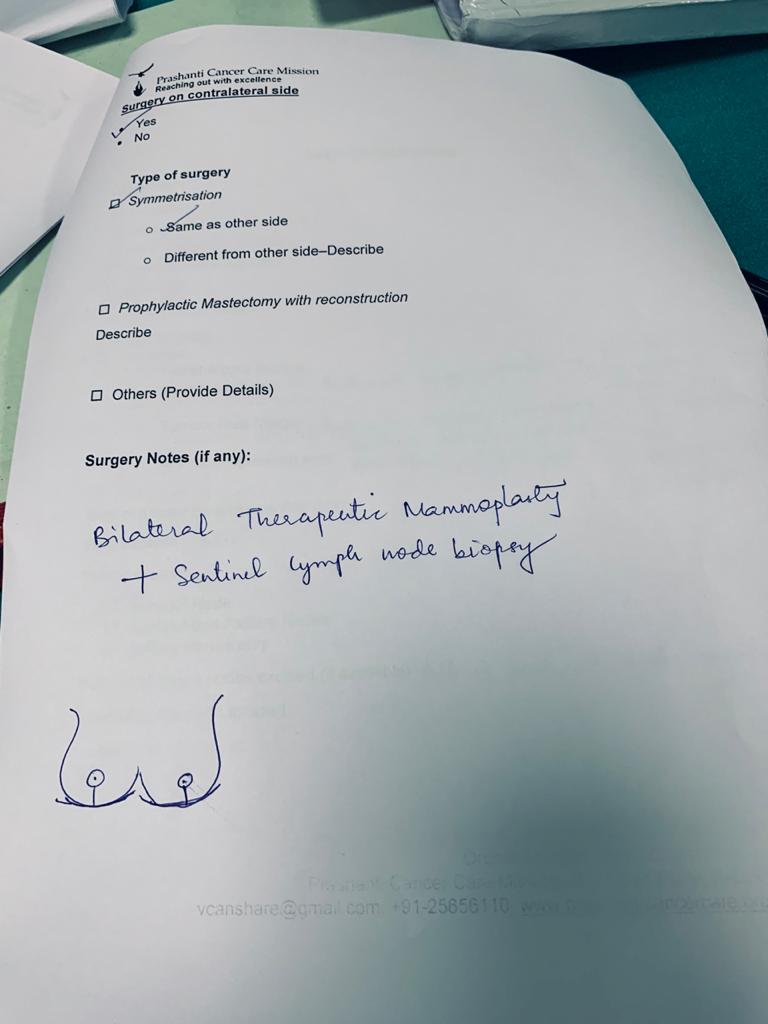 Prashanti Cancer Care Mission
Reaching out with excellence
Surgery on contralateral side
Yes
No
Type of surgery
Symmetrisation
Same as other side
Different from other side–Describe
Prophylactic Mastectomy with reconstruction
Describe
Others (Provide Details)
Surgery Notes (if any):
Bilateral Therapeutic Mammoplasty
+ Sentinel lymph node biopsy
Prashanti Cancer Care Mission
vcanshare@gmail.com, +91-25656110